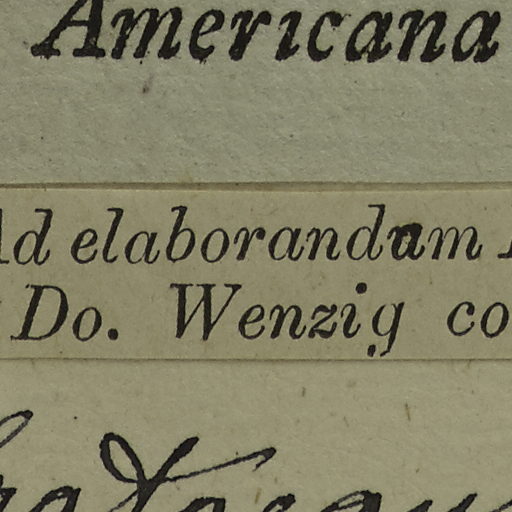 Americana
Ad elaborandum
Do. Wenzig co